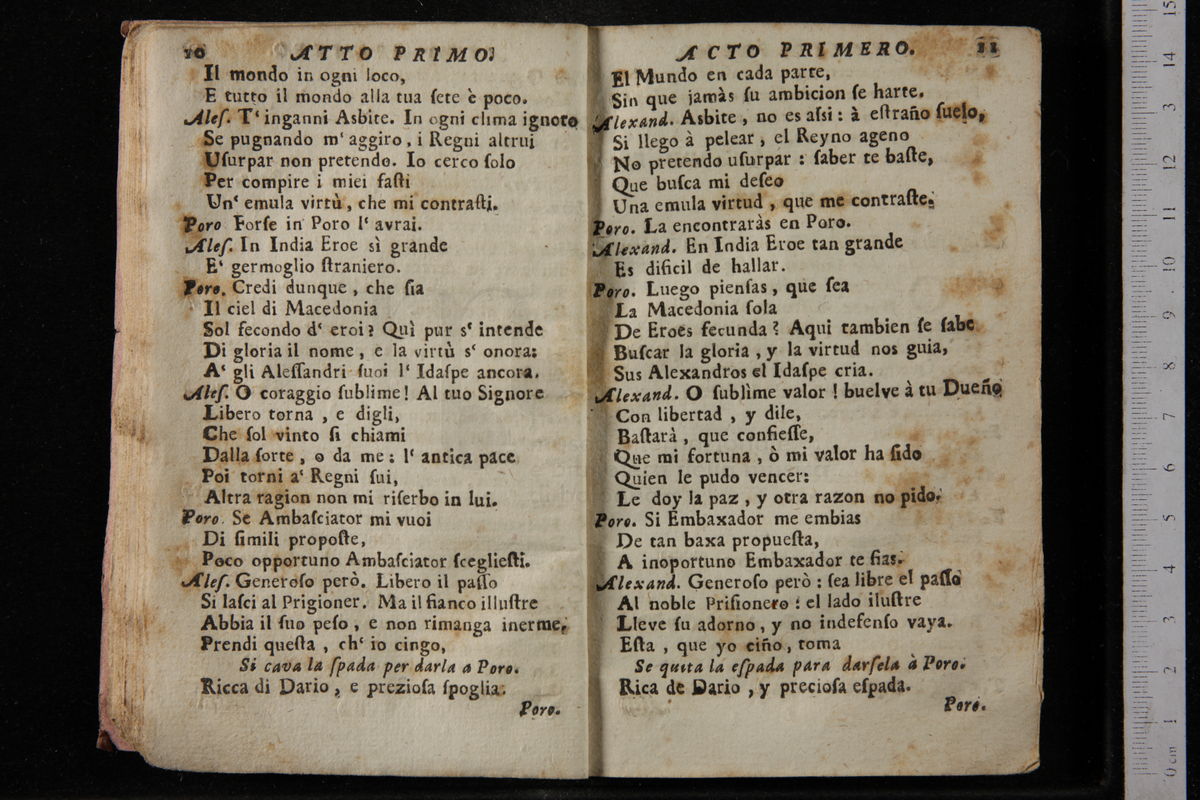 10 ATTO PRIMO.
Il mondo in ogni loco,
E tutto il mondo alla tua ſete è poco.
Aleſ. T' inganni Asbite. In ogni clima ignoto
Se pugnando m' aggiro, i Regni altrui
Uſurpar non pretendo. Io cerco ſolo
Per compire i miei faſti
Un' emula virtù, che mi contraſti.
Poro Forſe in Poro l' avrai.
Aleſ. In India Eroe sì grande
E' germoglio ſtraniero.
Poro. Credi dunque, che ſia
Il ciel di Macedonia
Sol fecondo d' eroi? Quì pur s' intende
Di gloria il nome, e la virtù s' onora:
A' gli Aleſſandri ſuoi l' Idaſpe ancora.
Aleſ. O coraggio ſublime! Al tuo Signore
Libero torna, e digli,
Che ſol vinto ſi chiami
Dalla ſorte, o da me: l' antica pace
Poi torni a' Regni ſui,
Altra ragion non mi riſerbo in lui.
Poro. Se Ambaſciator mi vuoi
Di ſimili propoſte,
Poco opportuno Ambaſciator ſceglieſti.
Aleſ. Generoſo però. Libero il paſſo
Si laſci al Prigioner. Ma il fianco illuſtre
Abbia il ſuo peſo, e non rimanga inerme,
Prendi queſta, ch' io cingo,
Si cava la ſpada per darla a Poro.
Ricca di Dario, e prezioſa ſpoglia.
Poro.
ACTO PRIMERO. 11
El Mundo en cada parte,
Sin que jamàs ſu ambicion ſe harte.
Alexand. Asbite, no es aſsi: à eſtraño ſuelo,
Si llego à pelear, el Reyno ageno
No pretendo uſurpar: ſaber te baſte,
Que buſca mi deſeo
Una emula virtud, que me contraſte.
Poro. La encontraràs en Poro.
Alexand. En India Eroe tan grande
Es dificil de hallar.
Poro. Luego pienſas, que ſea
La Macedonia ſola
De Eroes fecunda? Aqui tambien ſe ſabe
Buſcar la gloria, y la virtud nos guia,
Sus Alexandros el Idaſpe cria.
Alexand. O ſublìme valor! buelve à tu Dueño
Con libertad, y dile,
Baſtarà, que confieſſe,
Que mi fortuna, ò mi valor ha ſido
Quien le pudo vencer:
Le doy la paz, y otra razon no pido.
Poro. Si Embaxador me embias
De tan baxa propueſta,
A inoportuno Embaxador te fias.
Alexand. Generoſo però: ſea libre el paſſo
Al noble Priſionero: el lado iluſtre
Lleve ſu adorno, y no indefenſo vaya.
Eſta, que yo ciño, toma
Se quita la eſpada para darſela à Poro.
Rica de Dario, y precioſa eſpada.
Poro.
0 cm 1 2 3 4 5 6 7 8 9 10 11 12 13 14 15